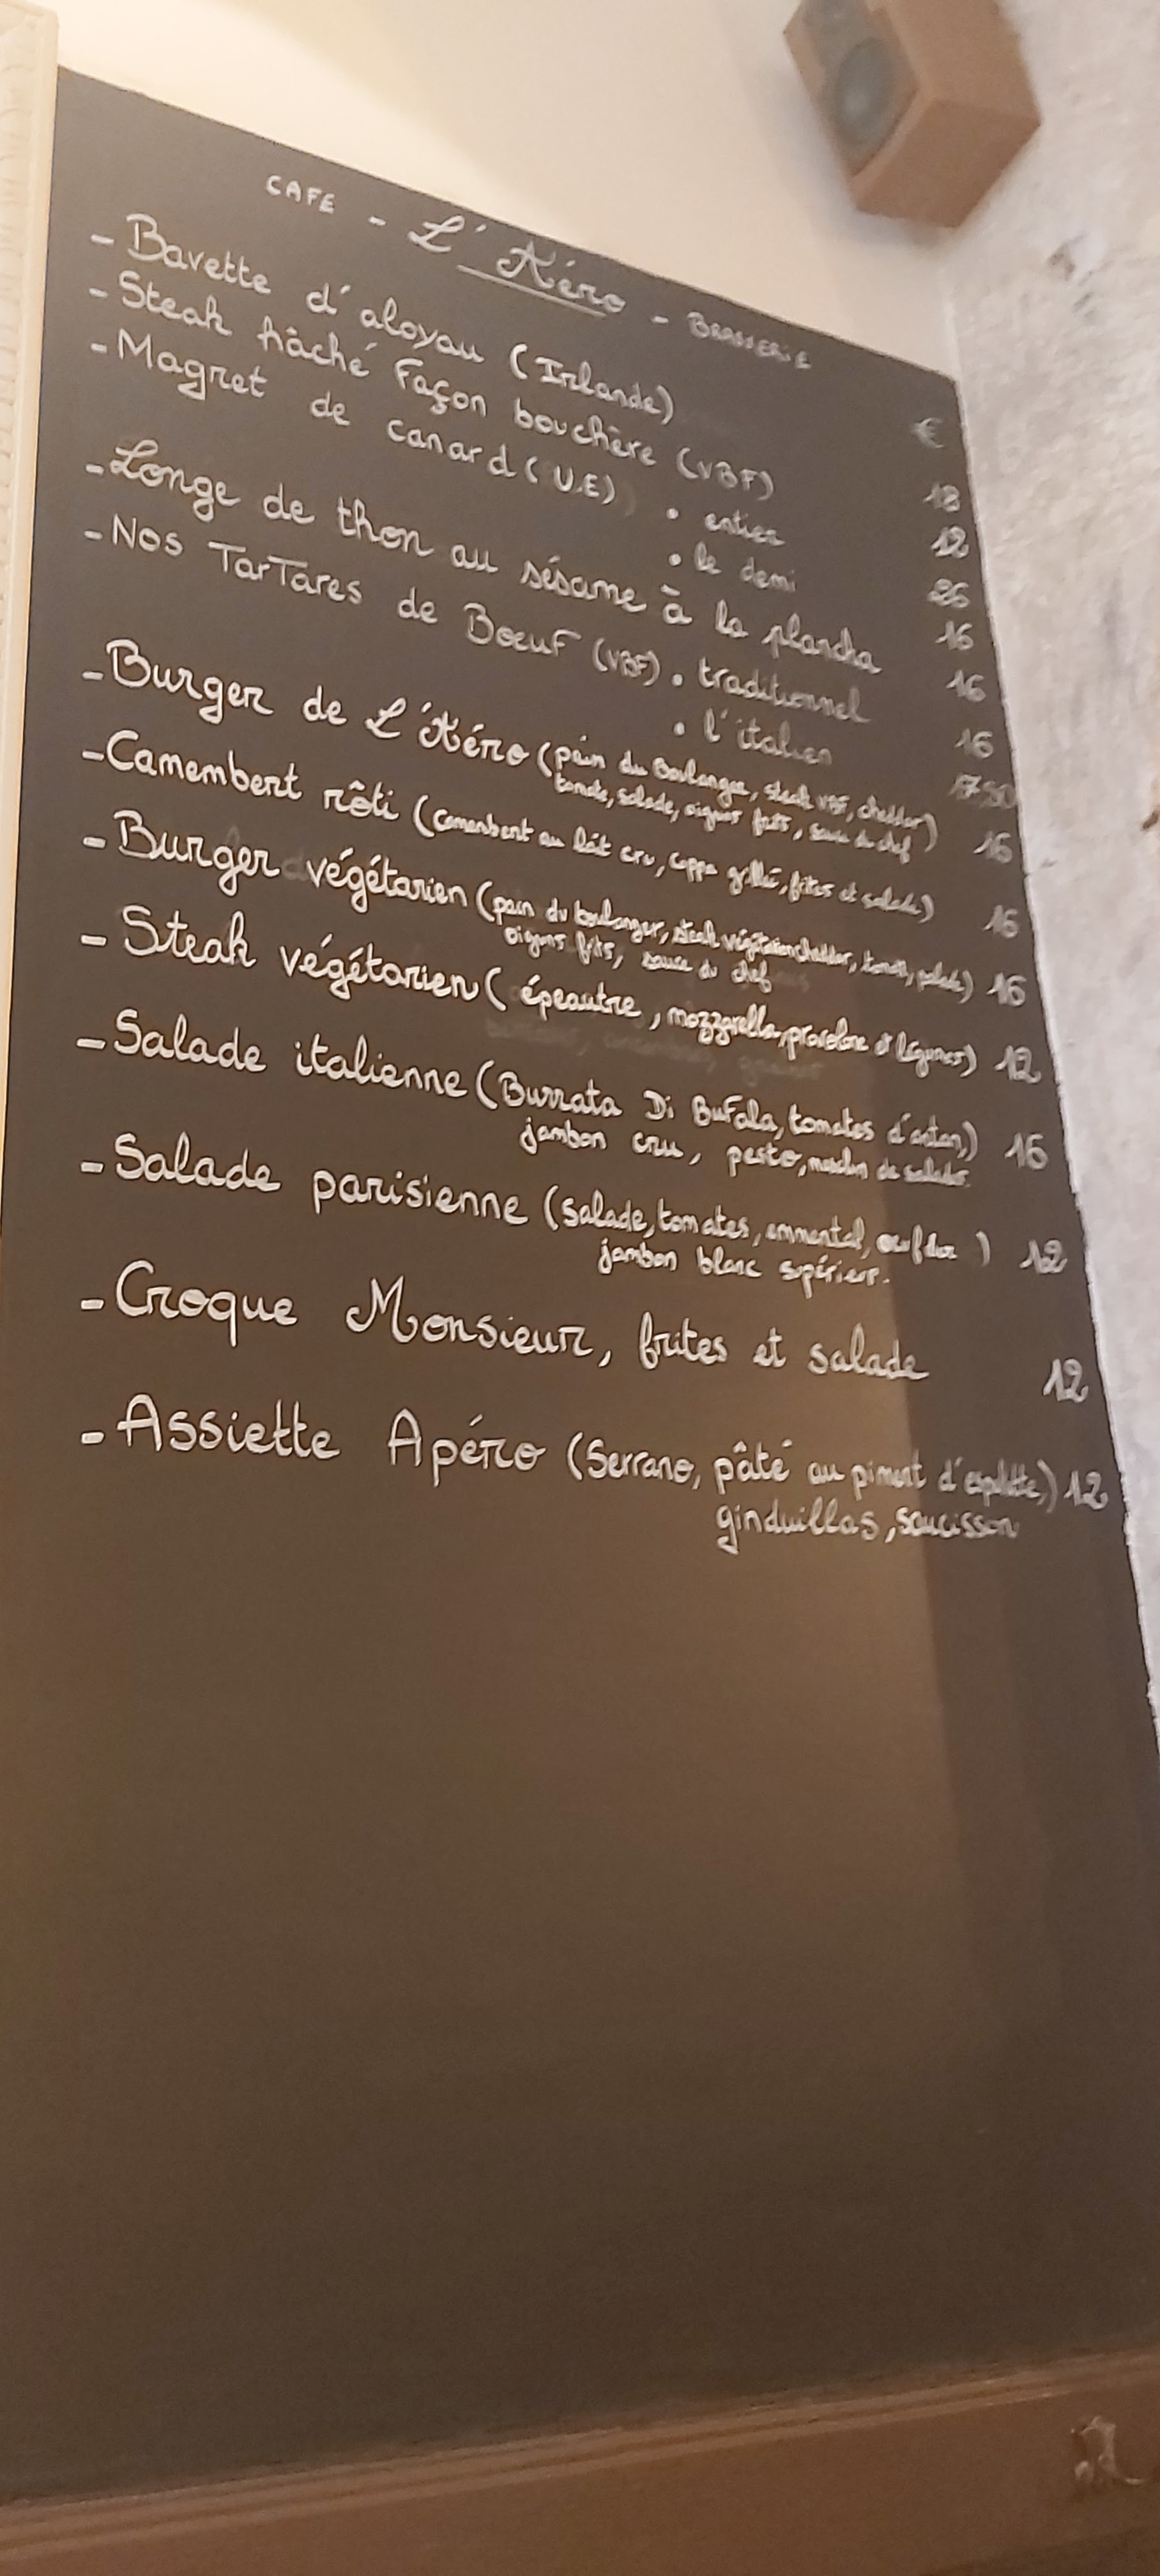 CAFE - L'Aéro - BRASSERIE
€
- Bavette d'aloyau (Irlande) 18
- Steak hâché Façon bouchère (VBF) 12
- Magret de canard (U.E) • entier 26
• le demi 16
- Longe de thon au sésame à la plancha 16
- Nos TarTares de BoeuF (VBF) • traditionnel 16
• l'italien 17,50
- Burger de L'Aéro (pain du Boulanger, steak VBF, cheddar) 16
tomate, salade, oignons frits, sauce du chef
- Camembert rôti (camembert au lait cru, coppa grillé, frites et salade) 16
- Burger végétarien (pain du boulanger, steak végétarien, cheddar, tomate, salade) 16
oignons frits, sauce du chef
- Steak végétarien (épeautre, mozzarella, provolone et légumes) 12
- Salade italienne (Burrata Di BuFala, tomates d'antan,) 16
jambon cru, pesto, mesclun de salades.
- Salade parisienne (salade, tomates, emmental, oeuf dur ) 12
jambon blanc supérieur.
- Croque Monsieur, frites et salade 12
- Assiette Apéro (Serrano, pâté au piment d'espelette,) 12
ginduillas, saucisson